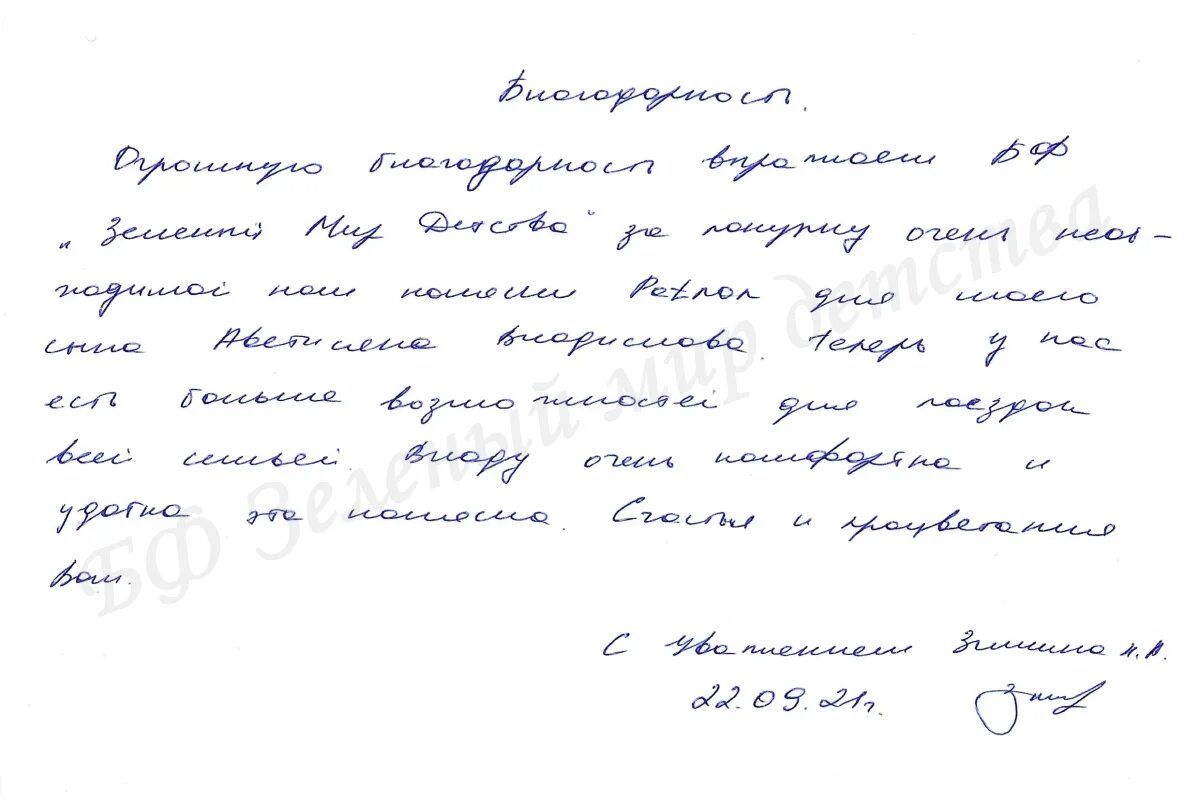 Благодарность.
Огромную благодарность выражаем БФ
„Зеленый Мир Детства" за покупку очень необ-
ходимой нам коляски Patron для моего
сына Аветисяна Владислава. Теперь у нас
есть больше возможностей для поездок
всей семьей. Владу очень комфортно и
удобно эта коляска. Счастья и процветания
Вам.
С уважением Зимина Н.А.
22.09.21г.
БФ Зеленый мир детства